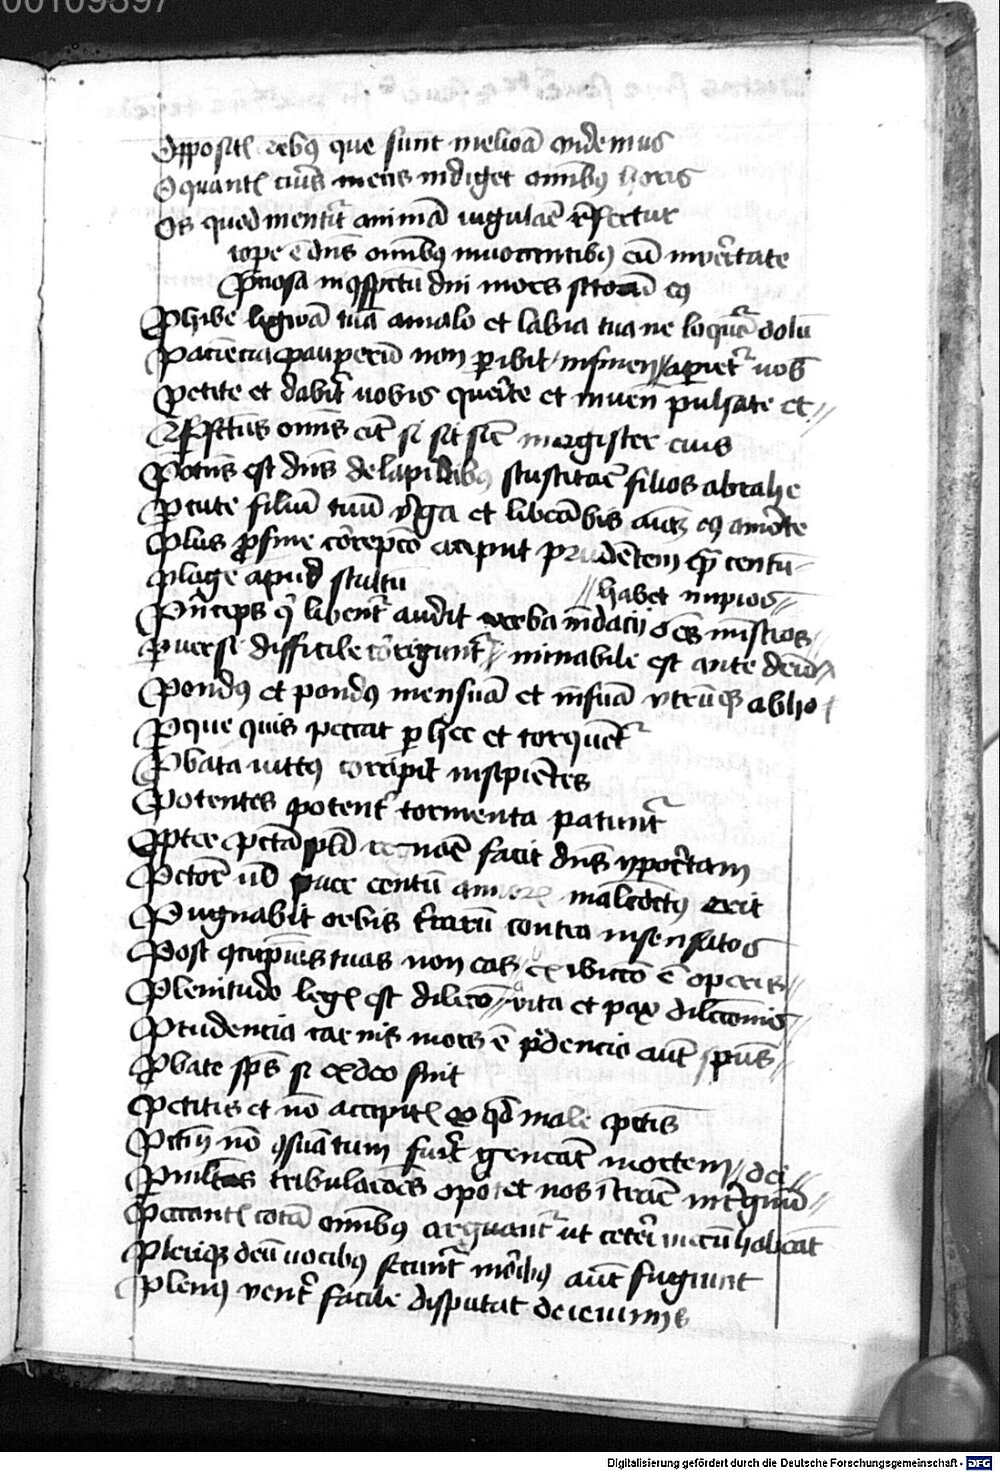 00109397
Opposit rebus que sunt meliora videmus
O quanti cuius mens indiget omnibus horis
Os quod mentitur animam iugulare refertur
prope e dns omnibus invocantibus eum in veritate
Preciosa in conspectu dni mors sctorum eius
Prohibe lingwam tuam a malo et labia tua ne loquantur dolum
Paciencia pauperum non peribit in finem aperietur vobis
Petite et dabitur vobis querite et invenietis pulsate et
Perfectus omnis erit si sit sicut magister eius
Potens est dns de lapidibus suscitare filios abrahe
Percute filium tuum virga et liberabis animam eius a morte
Plus proficit correpcio aput prudentem quam centum
plage apud stultum habet impios
Princeps qui libenter audit verba mendacii omnes ministros
Perversi difficile corriguntur minabile est ante deum
Pondus et pondus mensura et mensura utrumque abho
Per que quis peccat per hec et torquetur
Probata virtus corripit insipientes
Potentes potenter tormenta patiuntur
Propter peccata populi regnare facit dns ypocritam
Peccator puer centum annorum maledictus erit
Pugnabit orbis terrarum contra insensatos
Post concupiscencias tuas non eas ex dilectio e operis
Plenitudo legis est dilectio vita et pax dilectionis
Prudencia carnis mors e prudencia autem spiritus
Probate spiritus si ex deo sint
Petitis et non accipitis eo quod male petitis
Peccatum non consummatum fuerit generat mortem dei
Per multas tribulaciones oportet nos intrare in regnum
Peccantes coram omnibus arguantur ut ceteri metum habeant
Plerique deum vocibus secuntur moribus autem fugiunt
Plenus venter facile disputat de ieiuniis
Digitalisierung gefördert durch die Deutsche Forschungsgemeinschaft - DFG